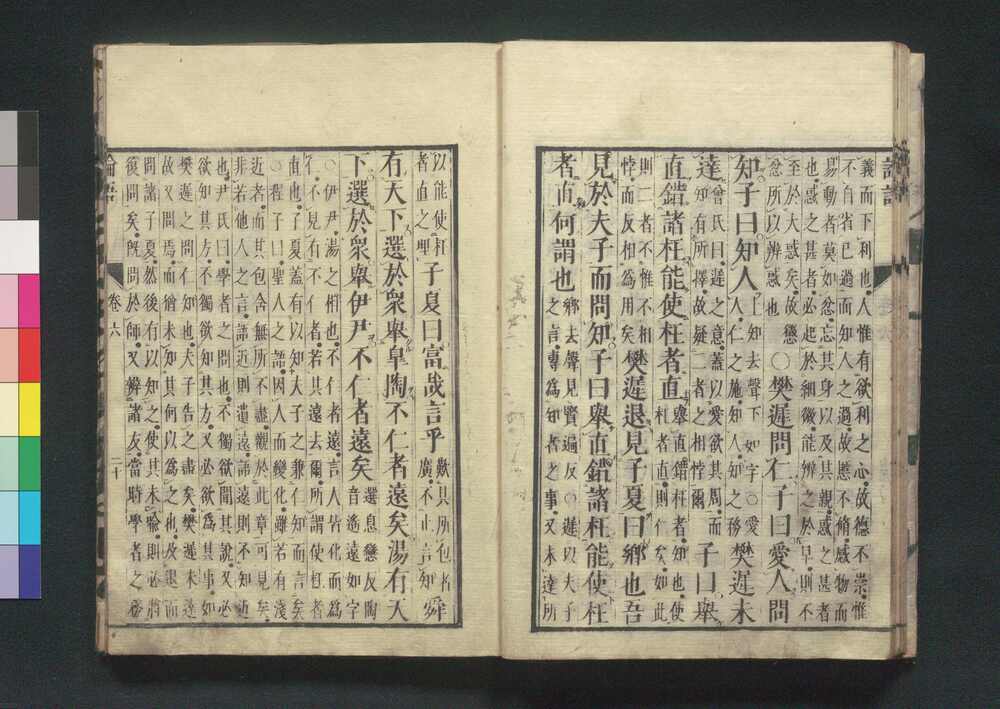 論語
義而下利也。人惟有欲利之心。故德不崇。惟
不自省己過而知人之過。故慝不脩。感物而
易動者莫如忿。忘其身以及其親。惑之甚者
也。惑之甚者。必起於細微。能辨之於早。則不
至於大惑矣。故懲
忿所以辨惑也
○樊遲問仁子曰愛人問
知子曰知人
上知去聲下如字○愛
人仁之施。知人知之務
樊遲未
達
曾氏曰。遲之意。蓋以愛欲其周。而
知有所擇。故疑二者之相悖爾
子曰舉
直錯諸枉能使枉者直
舉直錯枉者。知也。使
枉者直。則仁矣。如此
則二者不惟不相
悖而反相為用矣
樊遲退見子夏曰鄉也吾
見於夫子而問知子曰舉直錯諸枉能使枉
者直何謂也
鄉去聲見賢遍反○遲以夫子
之言。專為知者之事。又未達所
以能使枉
者直之理
子夏曰富哉言乎
歎其所包者
廣。不止言知
舜
有天下選於衆舉皐陶不仁者遠矣湯有天
下選於衆舉伊尹不仁者遠矣
選息戀反陶
音遙遠如字
○伊尹湯之相也。不仁者遠。言人皆化而為
仁。不見有不仁者。若其遠去爾。所謂使枉者
直也。子夏蓋有以知夫子之兼仁知而言矣
○程子曰。聖人之語。因人而變化。雖若有淺
近者。而其包含無所不盡。觀於此章可見矣。
非若他人之言。語近則遺遠。語遠則不知近
也。尹氏曰。學者之問也。不獨欲聞其說。又必
欲知其方。不獨欲知其方。又必欲為其事。如
樊遲之問仁知也。夫子告之盡矣。樊遲未達
故又問焉。而猶未知其何以為之也。及退而
問諸子夏。然後有以知之。使其未喻。則必將
復問矣。既問於師。又辨諸友。當時學者之務
論語　卷六　二十